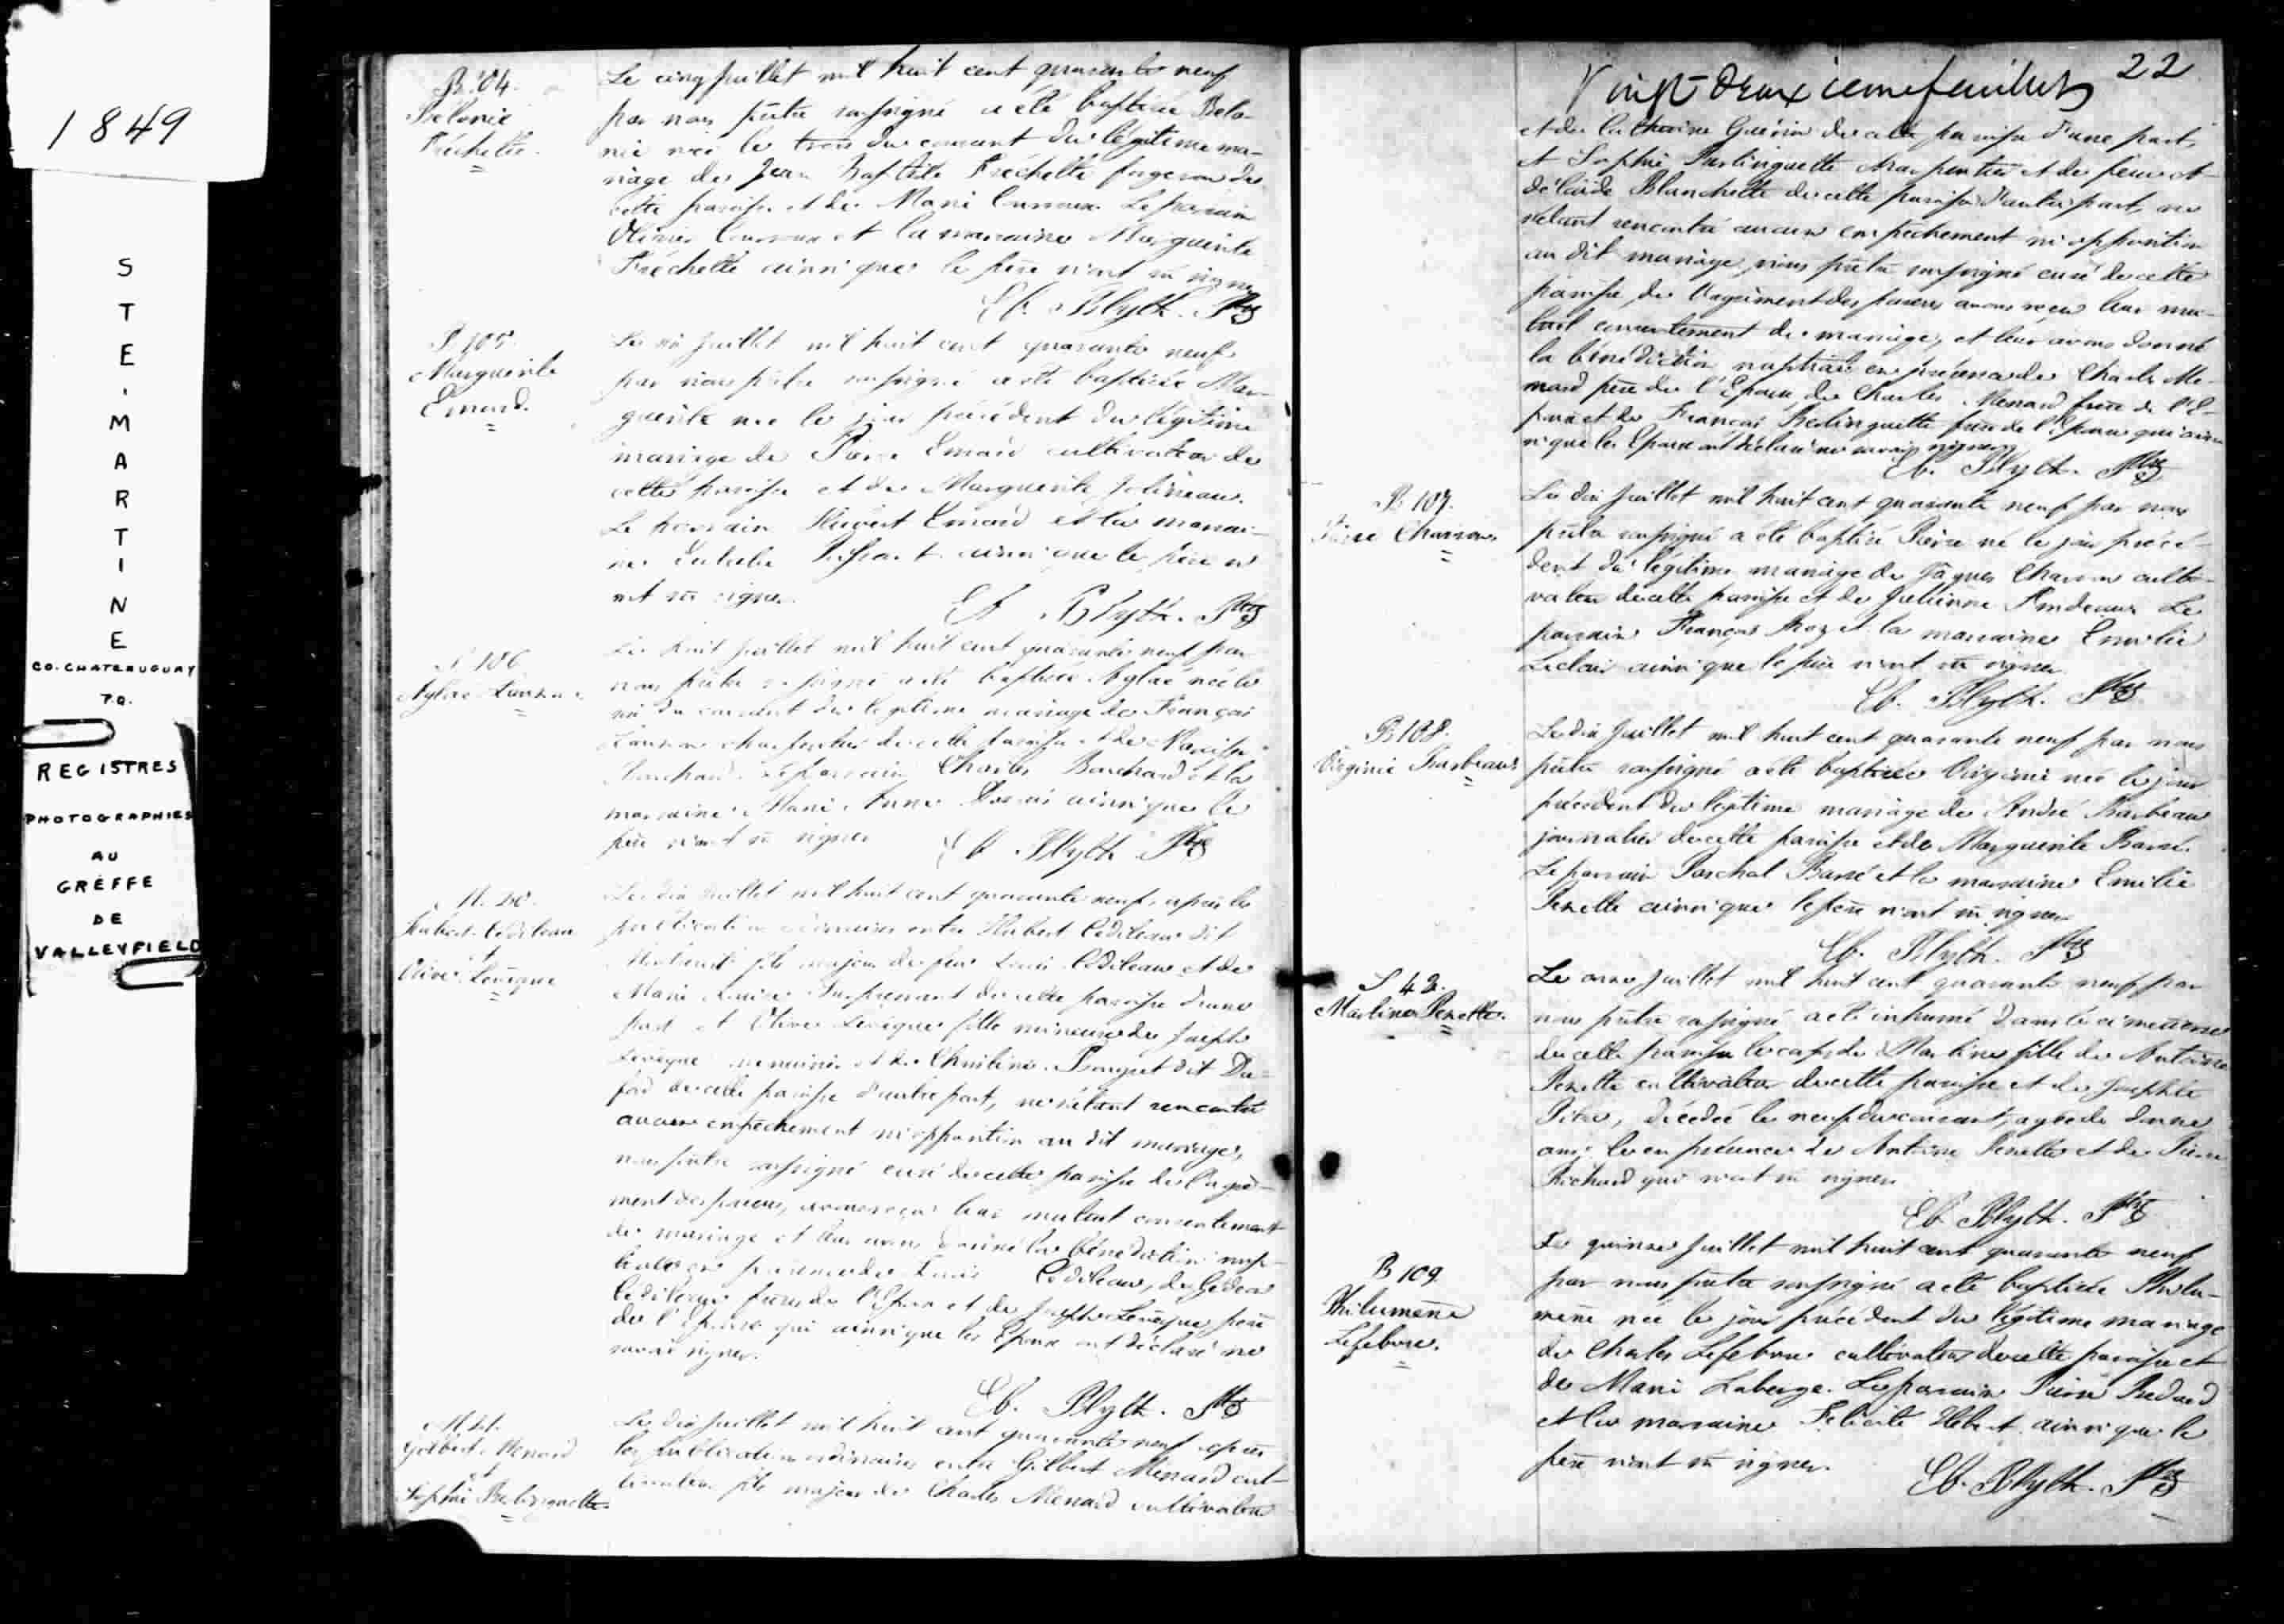 1849
STE. MARTINE
CO. CHATEAUGUAY
P.Q.
REGISTRES
PHOTOGRAPHIES
AU
GREFFE
DE
VALLEYFIELD
B. 104.
Bélonie
Fréchette.
Le cinq juillet mil huit cent quarante neuf
par nous prêtre soussigné a été baptisée Belo-
nie née le trois du courant du légitime ma-
riage de Jean Baptiste Fréchette forgeron de
cette paroisse et de Marie Le parrain
Olivier et la marraine Marguerite
Fréchette ainsi que le père n'ont su signer
Eb. Blyth. Ptre
B 105.
Marguerite
Emard.
Le six juillet mil huit cent quarante neuf
par nous prêtre soussigné a été baptisée Mar-
guerite née le jour précédent du légitime
mariage de Pierre Emard cultivateur de
cette paroisse et de Marguerite
Le parrain Hubert Emard et la marrai-
ne ainsi que le père n'
ont su signer.
Eb. Blyth. Ptre
B 106
Aglaé
Le huit juillet mil huit cent quarante neuf par
nous prêtre soussigné a été baptisée Aglaé née le
six du courant du légitime mariage de François
charpentier de cette paroisse et de Narcisse
Le parrain Charles Bouchard et la
marraine Marie Anne ainsi que le
père n'ont su signer
Eb. Blyth. Ptre
M. 20.
Hubert Cédileau
et
Olive Levêque
Le dix juillet mil huit cent quarante neuf, après la
publication ordinaire entre Hubert Cédileau dit
fils majeur de feu Louis Cédileau et de
Marie Louise Surprenant de cette paroisse d'une
part et Olive Levêque fille mineure de Joseph
Levêque menuisier et de Bouquet dit Du-
de cette paroisse d'autre part, ne s'étant rencontré
aucun empêchement ni opposition au dit mariage,
nous prêtre soussigné curé de cette paroisse de l'agré-
ment des parens, avons reçu leur mutuel consentement
de mariage et leur avons donné la bénédiction nup-
tiale en présence de Louis Cédileau, de Gédéon
Cédileau frères de l'Epoux et de Joseph Levêque père
de l'Epouse qui ainsi que les Epoux ont déclaré ne
savoir signer.
Eb. Blyth. Ptre
M. 21.
Gilbert Menard
et
Sophie Berlinguette
Le dix juillet mil huit cent quarante neuf après
les publications ordinaires entre Gilbert Ménard cul-
tivateur fils majeur de Charles Ménard cultivateur
22
Vingt deuxieme feuillet
et de Catherine Guérin de cette paroisse d'une part,
et Sophie Berlinguette charpentier et de feue A-
délaïde Blanchette de cette paroisse d'autre part, ne
s'étant rencontré aucun empêchement ni opposition
au dit mariage, nous prêtre soussigné curé de cette
paroisse, de l'agrément des parens avons reçu leur mu-
tuel consentement de mariage, et leur avons donné
la bénédiction nuptiale en présence de Charles Mé-
nard père de l'Epoux, de Charles Menard frère de l'E-
poux et de François Berlinguette père de l'Epouse qui ain-
si que les Epoux ont déclaré ne savoir signer
Eb. Blyth. Ptre
B. 107.
Pierre Charron
Le dix juillet mil huit cent quarante neuf par nous
prêtre soussigné a été baptisé Pierre né le jour précé-
dent du légitime mariage de Jâques Charron culti-
vateur de cette paroisse et de Julienne Le
parrain François et la marraine Emilie
Leclair ainsi que le père n'ont su signer
Eb. Blyth. Ptre
B 108.
Virginie Barbeau
Le dix juillet mil huit cent quarante neuf par nous
prêtre soussigné a été baptisée Virginie née le jour
précédent du légitime mariage de André Barbeau
journalier de cette paroisse et de Marguerite Barré.
Le parrain Paschal Barré et la marraine Emilie
Penelle ainsi que le père n'ont su signer
Eb. Blyth. Ptre
S 42.
Martine Penelle.
Le onze juillet mil huit cent quarante neuf par
nous prêtre soussigné a été inhumé dans le cimetierre
de cette paroisse le corps de Martine fille de Antoine
Penelle cultivateur de cette paroisse et de Josephte
décédée le neuf du courant, agée de
ans, le en présence de Antoine Penelle et de Pierre
Richard qui n'ont su signer
Eb. Blyth. Ptre
B 109
Philumène
Lefebvre.
Le quinze juillet mil huit cent quarante neuf
par nous prêtre soussigné a été baptisée Philu-
mène née le jour précédent du légitime mariage
de Charles Lefebvre cultivateur de cette paroisse et
de Marie Laberge. Le parrain Pierre Bedard
et la marraine Felicité Hébert ainsi que le
père n'ont su signer.
Eb. Blyth. Ptre